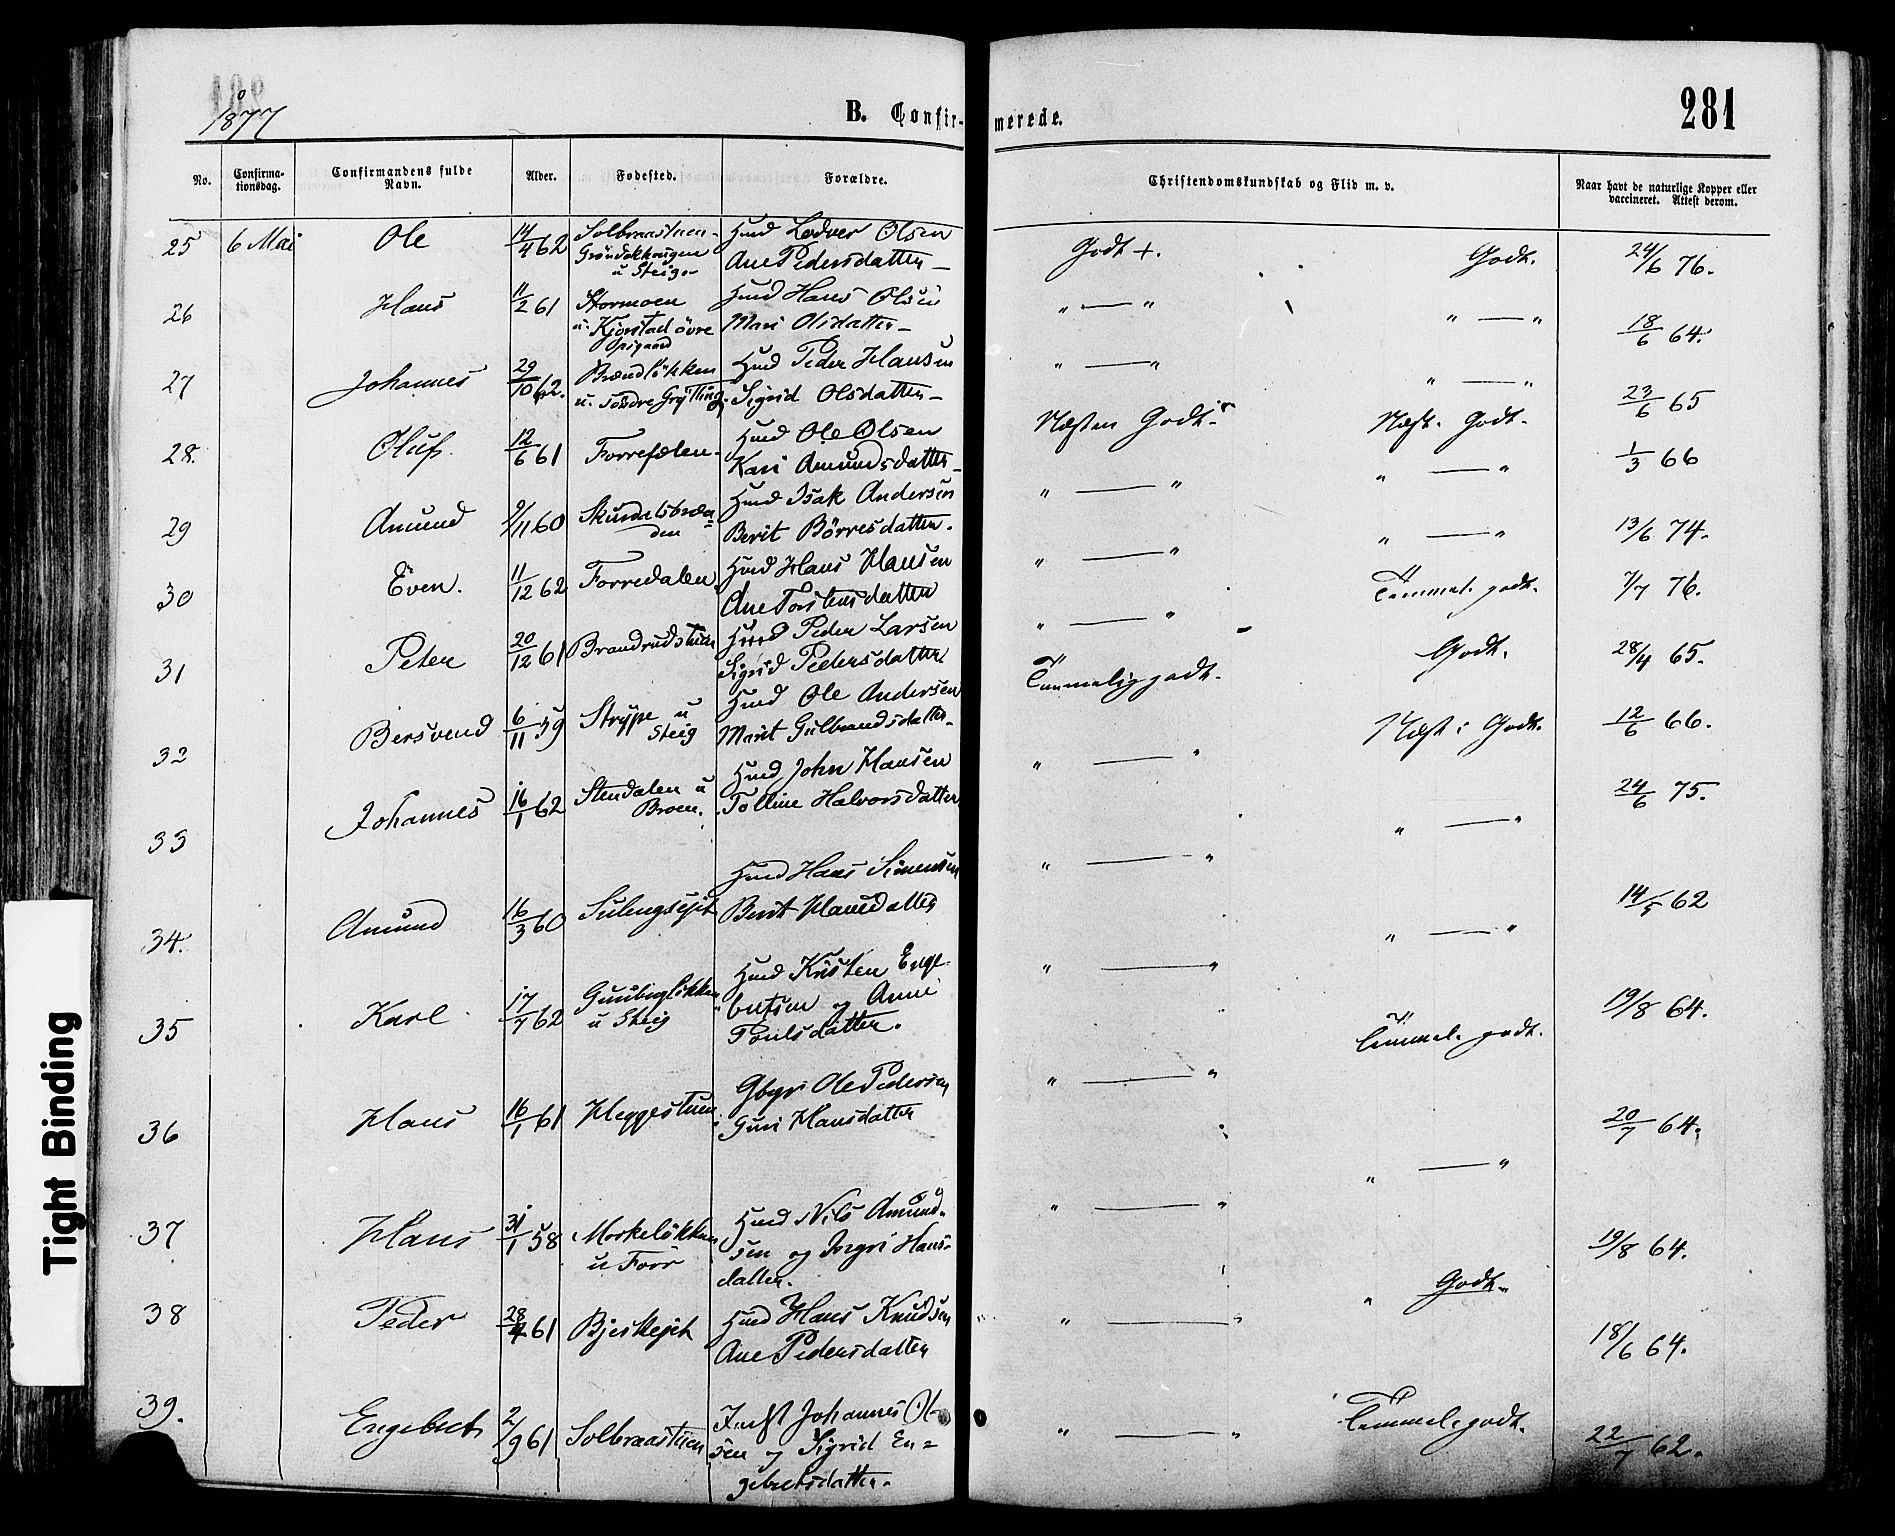 1877
B. Confir- merede.
281
No.
Confirma-
tionsdag.
Confirmandens fulde
Navn.
Alder.
Fødested.
Forældre.
Christendomskundskab og Flid m. v.
Naar havt de naturlige Kopper eller
vaccineret. Attest derom.
25 6 Mai Ole 14/4 62 Solbraastuen- Husmd Ole
Steig
Ane Pedersdatter
Godt +. Godt. 24/6 76.
26 Hans 11/2 61 Stormoen Husmd Hans Olsen
u. Kjorstad övre Mari Olsdatter
Opigaard
" — " " — " 18/6 64.
27 Johannes 29/10 62. Brændløkken Husmd Peder Hansen
u. Sigrid Olsdatter
" — " " — " 23/6 65
28. Oluf. 12/6 61 Husmd Ole Olsen
Kari Amundsdatter
Næsten Godt. Næst. Godt. 1/3 66
29 Amund 9/11 60 Husmd Isak Andersen
den Berit Börresdatter.
" — " " — " 13/6 74.
30 Even. 11/12 62 Forredalen Husmd Hans Hansen
Ane Torstensdatter
" — " Temmel. godt. 7/7 76.
31 Peter 20/12 61 Brandrudstuen Husmd Peder Larsen
Sigrid Pedersdatter
" — " Godt. 28/4 65.
32 Bersvend 6/11 59 Strype u Husmd Ole Andersen
Steig Marit Gulbrandsdatter
Temmelig godt. Næst. Godt. 12/6 66.
33 Johannes 16/1 62 Stendalen u Husmd John Hansen
Broen. Halvorsdatter
" — " " — " 24/6 75.
34. Amund 16/3 60 Husmd Hans Simensen
Berit Hansdatter
" — " " — " 14/5 62
35 Karl 17/7 62 Husmd Kristen Enge-
u Steig bretsen og Anne
Poulsdatter.
" — " Temmel. godt. 19/8 64.
36 Hans 16/1 61 Heggestuen Gbgr Ole Pedersen
Guri Hansdatter
" — " " — " 20/7 64.
37 Hans 31/1 58 Morkeløkken Husmd Nils Amund-
u Forr sen og Ingri Hans-
datter.
" — " " Godt. 19/8 64.
38 Peder 28/4 61 Husmd Hans Knudsen
Ane Pedersdatter
" — " 18/6 64.
39. Engebret 2/9 61 Solbraastuen Johannes Ol-
sen og Sigrid En=
gebretsdatter.
" — " Temmel. godt. 22/7 62.
Tight Binding